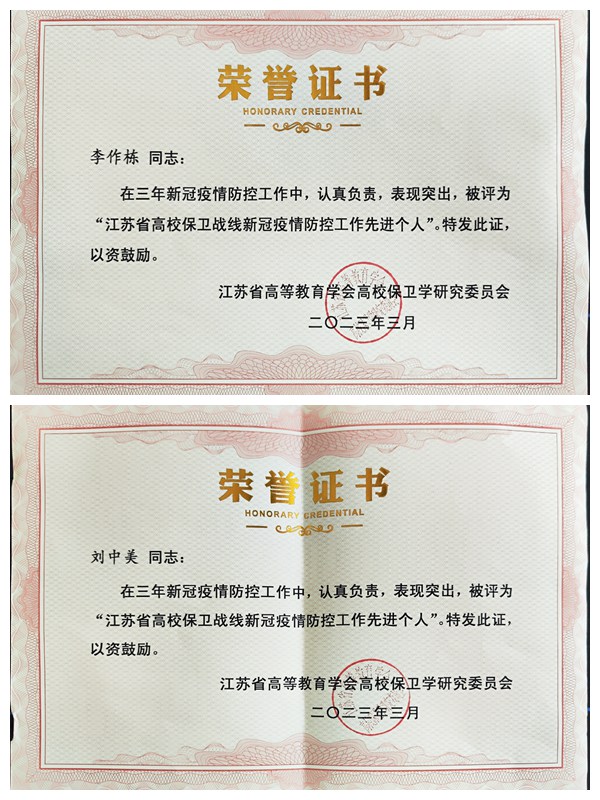 荣誉证书
HONORARY CREDENTIAL
李作栋 同志：
在三年新冠疫情防控工作中，认真负责，表现突出，被评为
“江苏省高校保卫战线新冠疫情防控工作先进个人”。特发此证，
以资鼓励。
江苏省高等教育学会高校保卫学研究委员会
二〇二三年三月
荣誉证书
HONORARY CREDENTIAL
刘中美 同志：
在三年新冠疫情防控工作中，认真负责，表现突出，被评为
“江苏省高校保卫战线新冠疫情防控工作先进个人”。特发此证，
以资鼓励。
江苏省高等教育学会高校保卫学研究委员会
二〇二三年三月